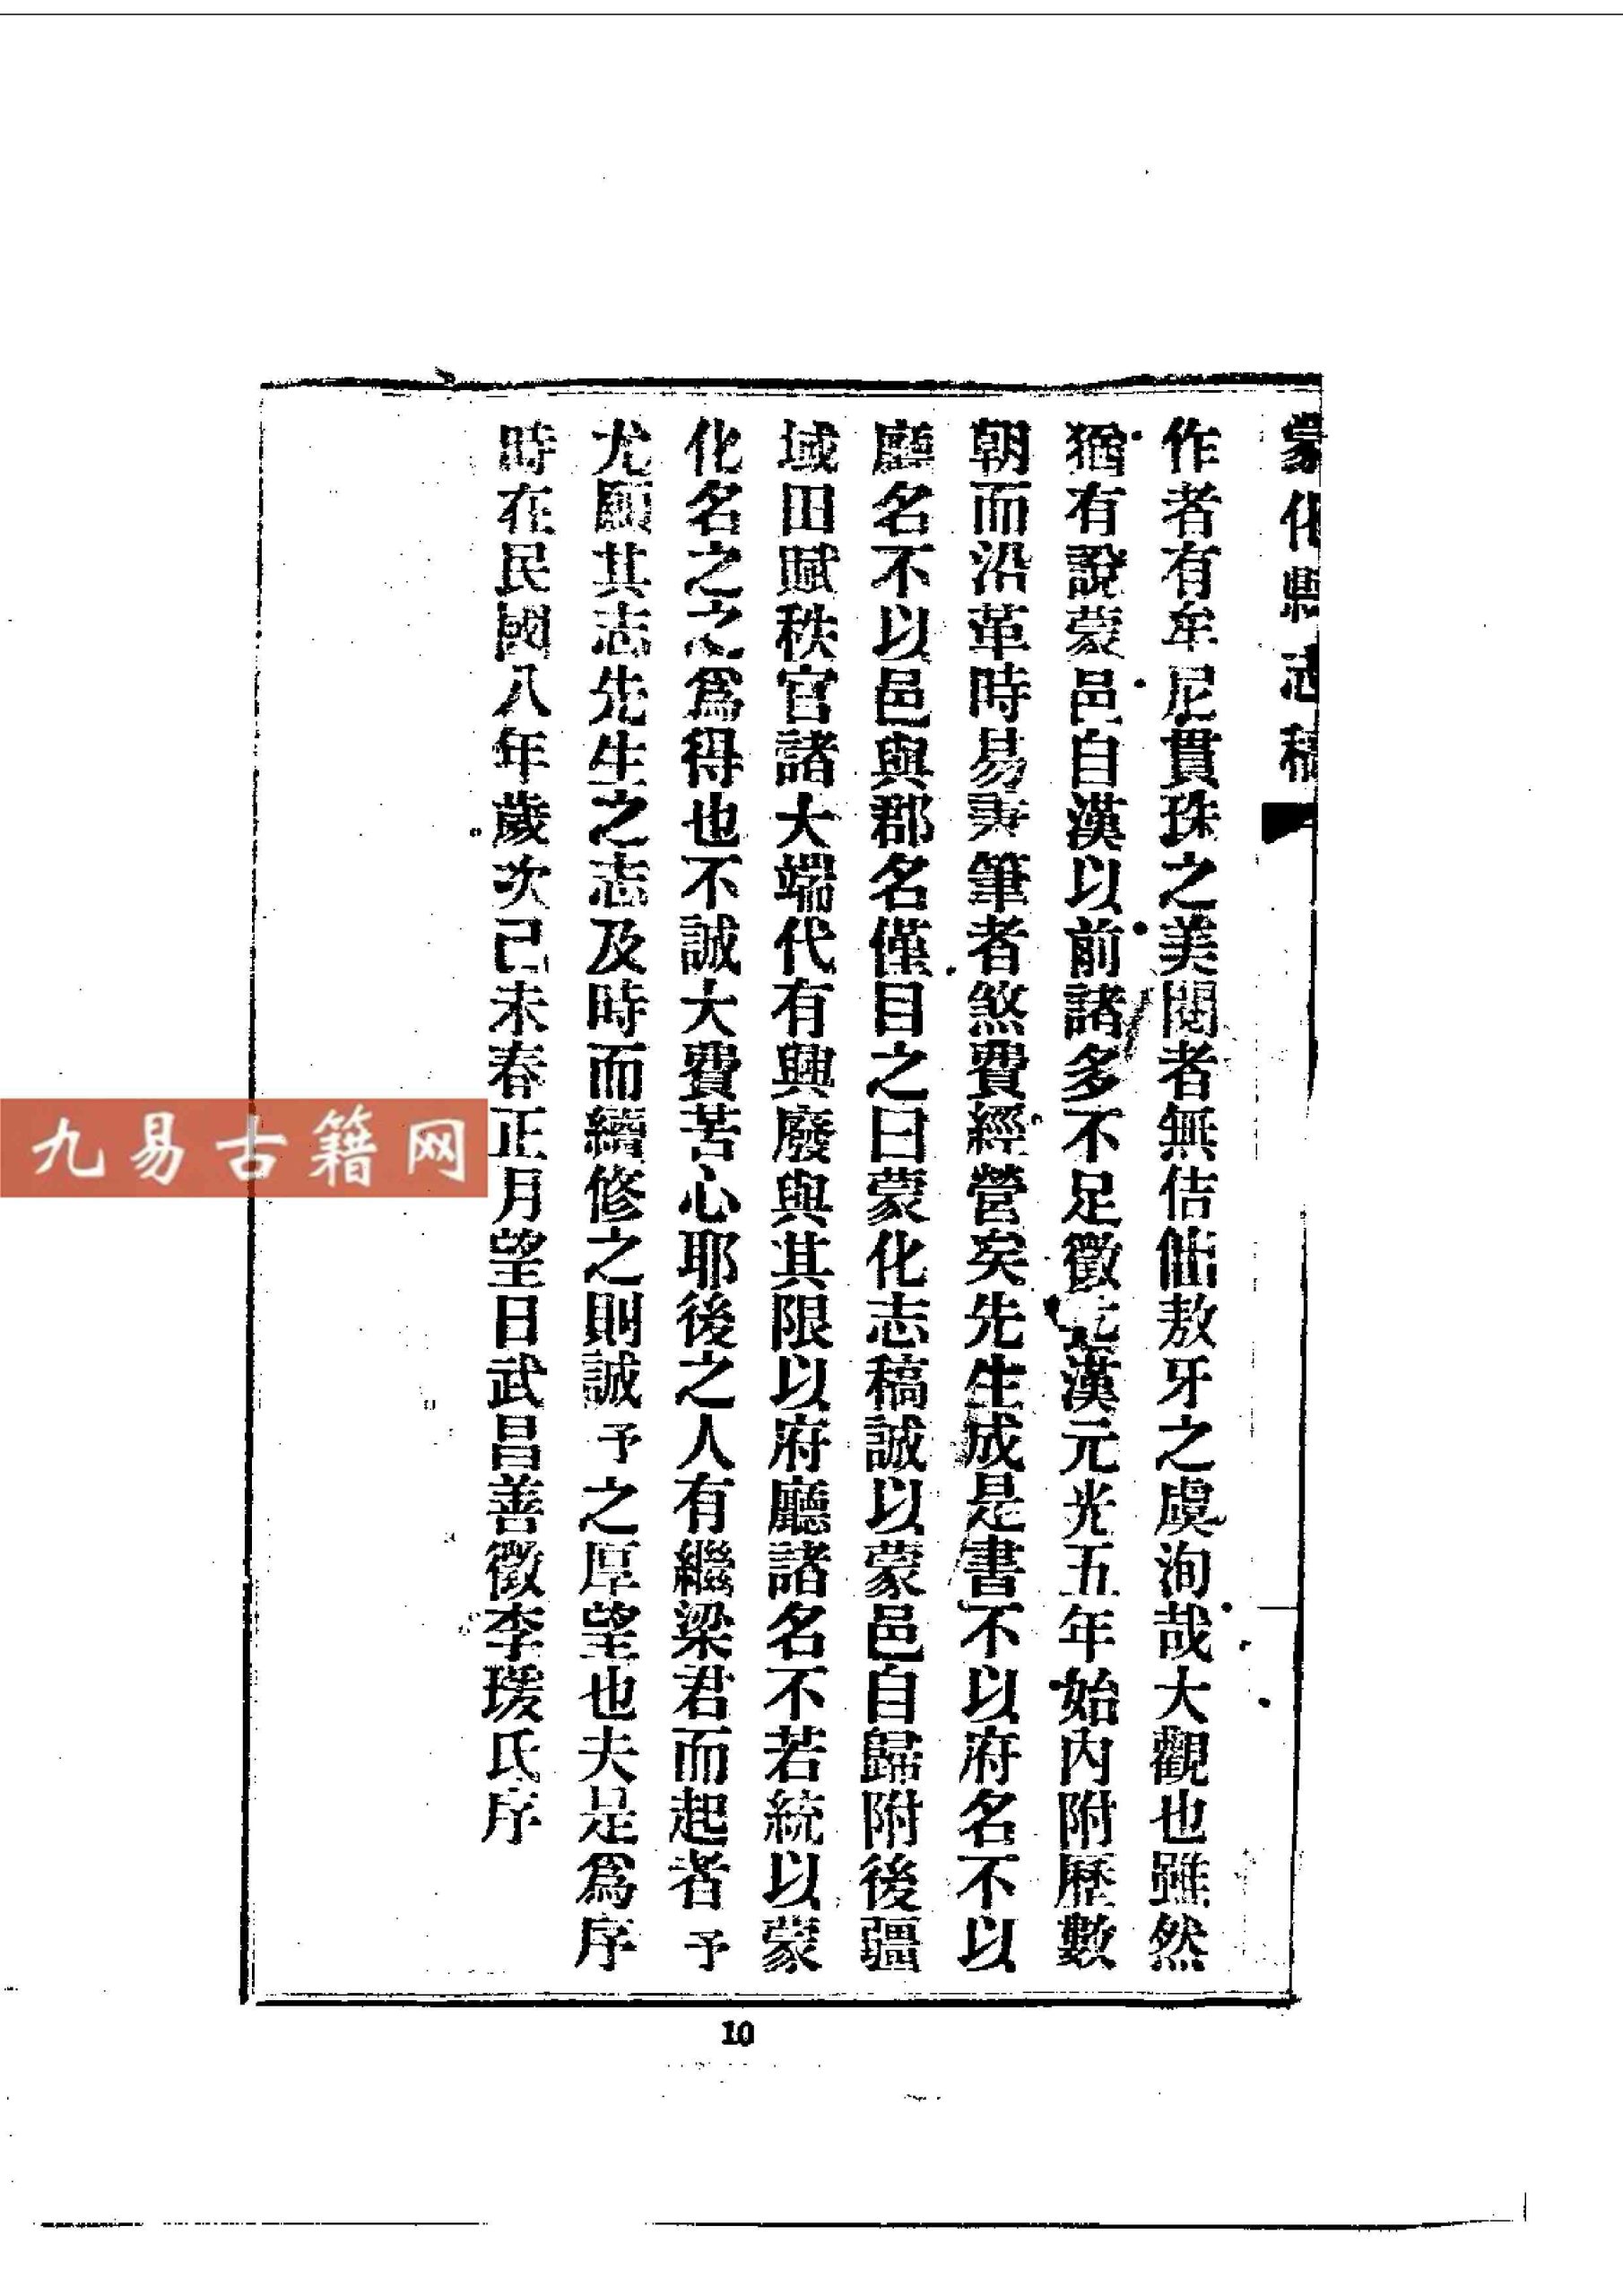 蒙化縣志稿
作者有牟尼貫珠之美閱者無佶倔敖牙之虞洵哉大觀也雖然
猶有說蒙邑自漢以前諸多不足徵迄漢元光五年始內附歷數
朝而沿革時易秉筆者煞費經營矣先生成是書不以府名不以
廳名不以邑與郡名僅目之曰蒙化志稿誠以蒙邑自歸附後疆
域田賦秩官諸大端代有興廢與其限以府廳諸名不若統以蒙
化名之之爲得也不誠大費苦心耶後之人有繼梁君而起者予
尤願其志先生之志及時而續修之則誠予之厚望也夫是爲序
時在民國八年歲次己未春正月望日武昌善徵李瑗氏序
九易古籍网
10